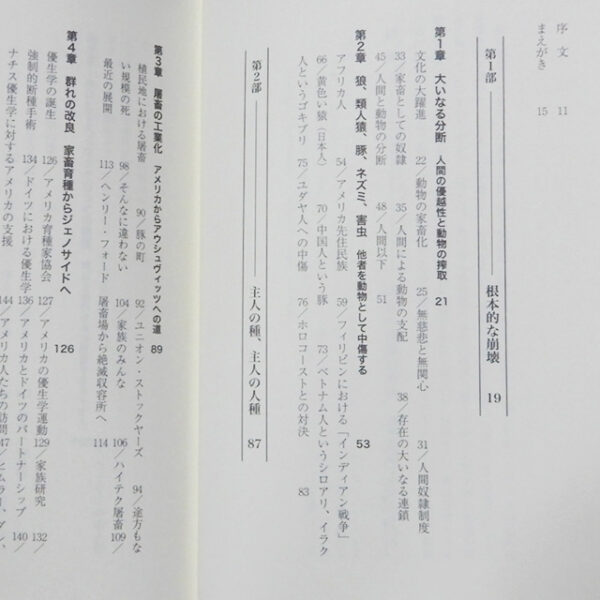 序文 11
まえがき 15
第1部 根本的な崩壊 19
第1章 大いなる分断 人間の優越性と動物の搾取 21
文化の大躍進 22/動物の家畜化 25/無慈悲と無関心 31/人間奴隷制度
33/家畜としての奴隷 35/人間による動物の支配 38/存在の大いなる連鎖
45/人間と動物の分断 48/人間以下 51
第2章 狼、類人猿、豚、ネズミ、害虫 他者を動物として中傷する 53
アフリカ人 54/アメリカ先住民族 59/フィリピンにおける「インディアン戦争」
66/黄色い猿(日本人) 70/中国人という豚 73/ベトナム人というシロアリ、イラク
人というゴキブリ 75/ユダヤ人への中傷 76/ホロコーストとの対決 83
第2部 主人の種、主人の人種 87
第3章 屠畜の工業化 アメリカからアウシュヴィッツへの道 89
植民地における屠畜 90/豚の町 92/ユニオン・ストックヤーズ 94/途方もな
い規模の死 98/そんなに違わない 104/家族のみんな 106/ハイテク屠畜 109/
最近の展開 113/ヘンリー・フォード 屠畜場から絶滅収容所へ 114
第4章 群れの改良 家畜育種からジェノサイドへ 126
優生学の誕生 126/アメリカ育種家協会 127/アメリカの優生学運動 129/家族研究 132/
強制的断種手術 134/ドイツにおける優生学 136/アメリカとドイツのパートナーシップ 140/
ナチス優生学に対するアメリカの支援 144/アメリカ人たちの訪問 147/ヒムラー、